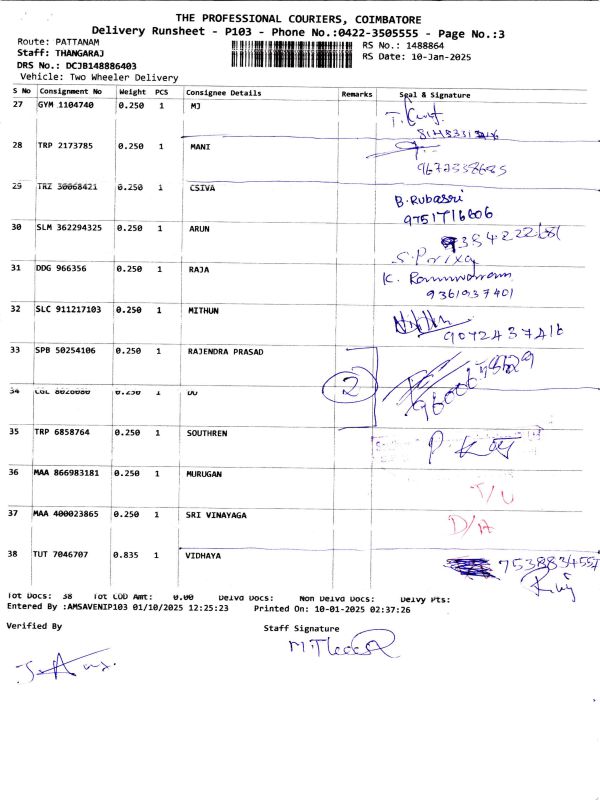 THE PROFESSIONAL COURIERS, COIMBATORE
Delivery Runsheet - P103 - Phone No.:0422-3505555 - Page No.:3
Route: PATTANAM
RS No.: 1488864
Staff: THANGARAJ
RS Date: 10-Jan-2025
DRS No.: DCJB148886403
Vehicle: Two Wheeler Delivery
S No Consignment No Weight PCS Consignee Details Remarks Seal & Signature
27 GYM 1104740 0.250 1 MJ
28 TRP 2173785 0.250 1 MANI
9672338685
29 TRZ 30068421 0.250 1 CSIVA
B. Rubasri
9751716606
30 SLM 362294325 0.250 1 ARUN
S. Porixa
31 DDG 966356 0.250 1 RAJA
9361037401
32 SLC 911217103 0.250 1 MITHUN
9072437416
33 SPB 50254106 0.250 1 RAJENDRA PRASAD
2
34 1
35 TRP 6858764 0.250 1 SOUTHREN
36 MAA 866983181 0.250 1 MURUGAN
T/U
37 MAA 400023865 0.250 1 SRI VINAYAGA
D/A
38 TUT 7046707 0.835 1 VIDHYA
7538834557
Tot Docs: 38 Tot COD Amt: 0.00 Delvd Docs: Non Delvd Docs: Delvy Pts:
Entered By :AMSAVENIP103 01/10/2025 12:25:23 Printed On: 10-01-2025 02:37:26
Verified By
Staff Signature